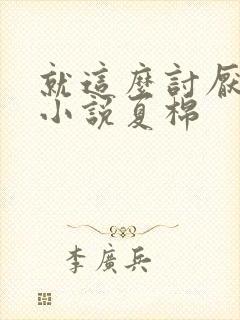 就這麼討厭
小說夏棉
李廣兵